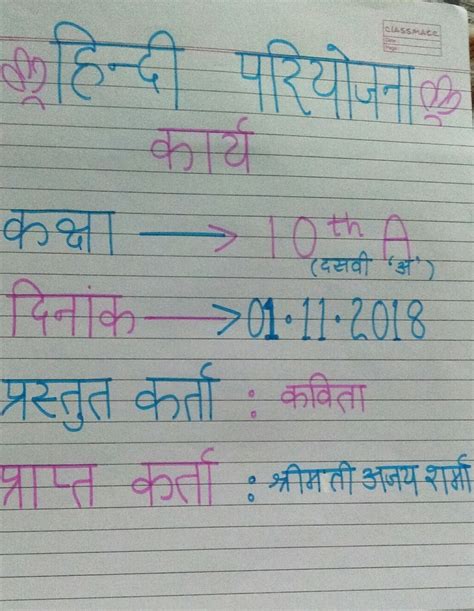 classmate
Date
Page
हिन्दी परियोजना
कार्य
कक्षा → 10th A
(दसवी 'अ')
दिनांक → 01.11.2018
प्रस्तुत कर्ता : कविता
प्राप्त कर्ता : श्रीमती अजय शर्मा